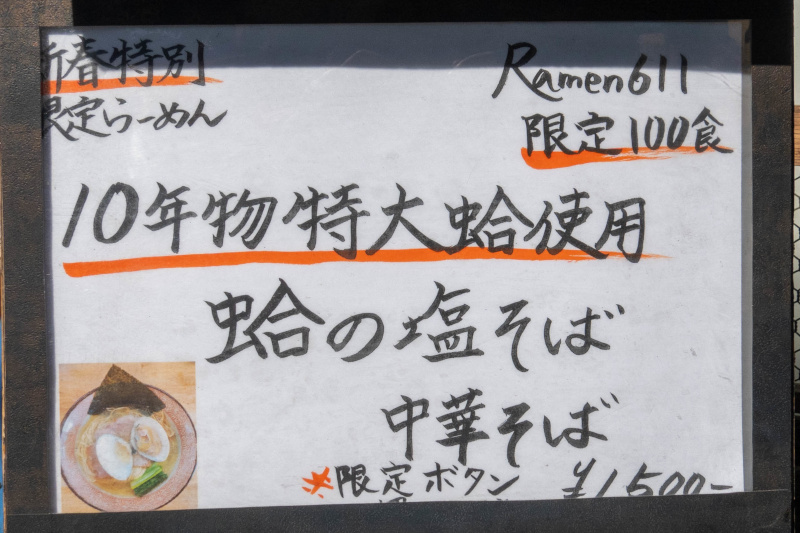 新春特別
限定らーめん
Ramen611
限定100食
10年物特大蛤使用
蛤の塩そば
中華そば
※限定ボタン ¥1,500-